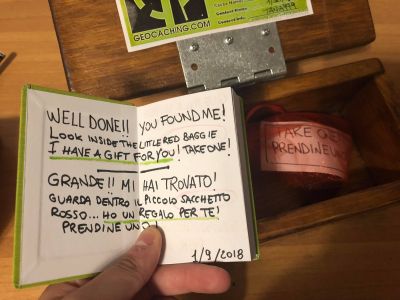 GEOCACHING.COM
WELL DONE!! YOU FOUND ME!
LOOK INSIDE THE LITTLE RED BAGGIE
I HAVE A GIFT FOR YOU! TAKE ONE!
GRANDE!! MI HAI TROVATO!
GUARDA DENTRO IL PICCOLO SACCHETTO
ROSSO... HO UN REGALO PER TE!
PRENDINE UNO!
1/9/2018
TAKE ONE
PRENDINE UNO